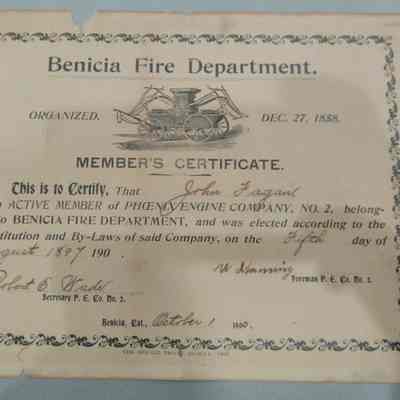 Benicia Fire Department.
ORGANIZED. DEC. 27, 1888.
MEMBER'S CERTIFICATE.
This is to Certify, That John Fagan
ACTIVE MEMBER of PHŒNIX ENGINE COMPANY, NO. 2, belong-
o BENICIA FIRE DEPARTMENT, and was elected according to the
stitution and By-Laws of said Company, on the Fifth day of
ugust 1897 190 .
W Manning
Foreman P. E. Co. No. 2.
Robert E Wade
Secretary P. E. Co. No. 2.
Benicia, Cal., October 1 1900.